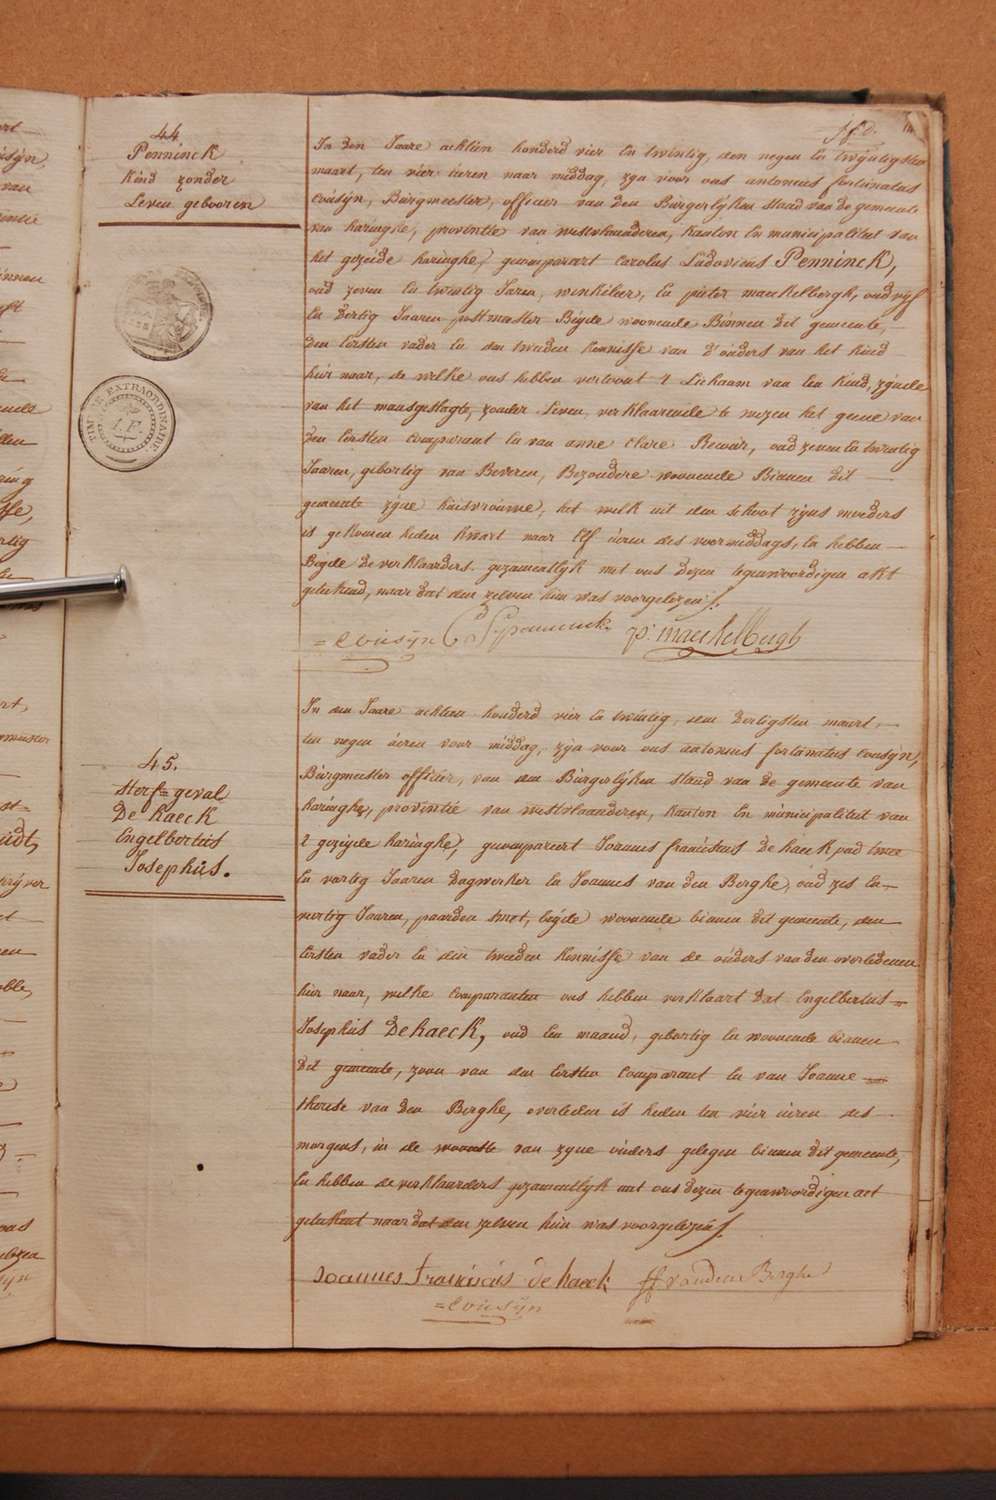 44
Penninck
kind zonder
Leven gebooren
TIMBRE EXTRAORDINAIRE
1. F.
In den Jaare achtien honderd vier en twintig, den negen en twijntigsten
maart, ten vier uren naar middag, zyn voor ons antonius fortunatus
Cousÿn, Burgmeester, officier van den Burgerlyken staad van de gemeente
van haringhe, provintie van westvlaanderen, kanton en municipaliteit van
het gezeide haringhe, gecompareert Carolus Ludovicus Penninck,
oud zeven en twintig Jaren, winkelier, en pieter maeckelbergh, oud vyf
en dertig Jaaren postmeester Beÿde woonende Binnen dit gemeente,
den Eersten vader en den tweeden kennisse van d'ouders van het kind
hier naar, de welke ons hebben vertoont 't Lichaam van een kind, zynde
van het mansgeslagte, zonder Leven, verklaarende te wezen het geene van
den Eersten comparant en van anne Clare Rewár, oud zeven en twintig
Jaaren, gebortig van Beveren, Bezondere woonende Binnen dit
gemeente zÿne huisvrouwe, het welk uit den schoot zyns moeders
is gekomen heden kwart naar Elf úeren des voormiddags, en hebben
Beyde de verklaarders gezamentlyk met ons dezen tegenwoordigen akt
geteekend, naar dat den zelven hun was voorgelezen /.
= Cousÿn C L penninck p: maeckelbergh
In den Jaare achtien honderd vier en twintig, den dertigsten maart
ten negen úeren voor middag, zyn voor ons antonius fortunatus Cousÿn,
Burgmeester officier, van den Burgerlyken staad van de gemeente van
haringhe, provintie van westvlaanderen, kanton en municipaliteit van
't gezeyde haringhe, gecompareert Joannes franciscus De haeck, oud twee
en veertig Jaaren dagwerker en Joannes van den Berghe, oud zes en
veertig Jaaren, paarden smet, beÿde woonende binnen dit gemeente, den
Eersten vader en den tweeden kennisse van de ouders van den overledenen
hier naar, welke comparanten ons hebben verklaart dat Engelbertus =
Josephus De haeck, oud een maand, gebortig en woonende binnen
dit gemeente, zoon van den Eersten comparant en van Joanne
therese van den Berghe, overleden is heden ten vier úeren des
morgens, in de woonste van zyne oúders gelegen binnen dit gemeente,
en hebben de verklaarders gezamentlyk met ons dezen tegenwoordigen act
geteekent naar dat den zelven hun was voorgelezen /.
Joannes franciscús de haeck vanden Berghe
= Cousÿn
45.
Sterf=geval
De haeck
Engelbertús
Josephús.